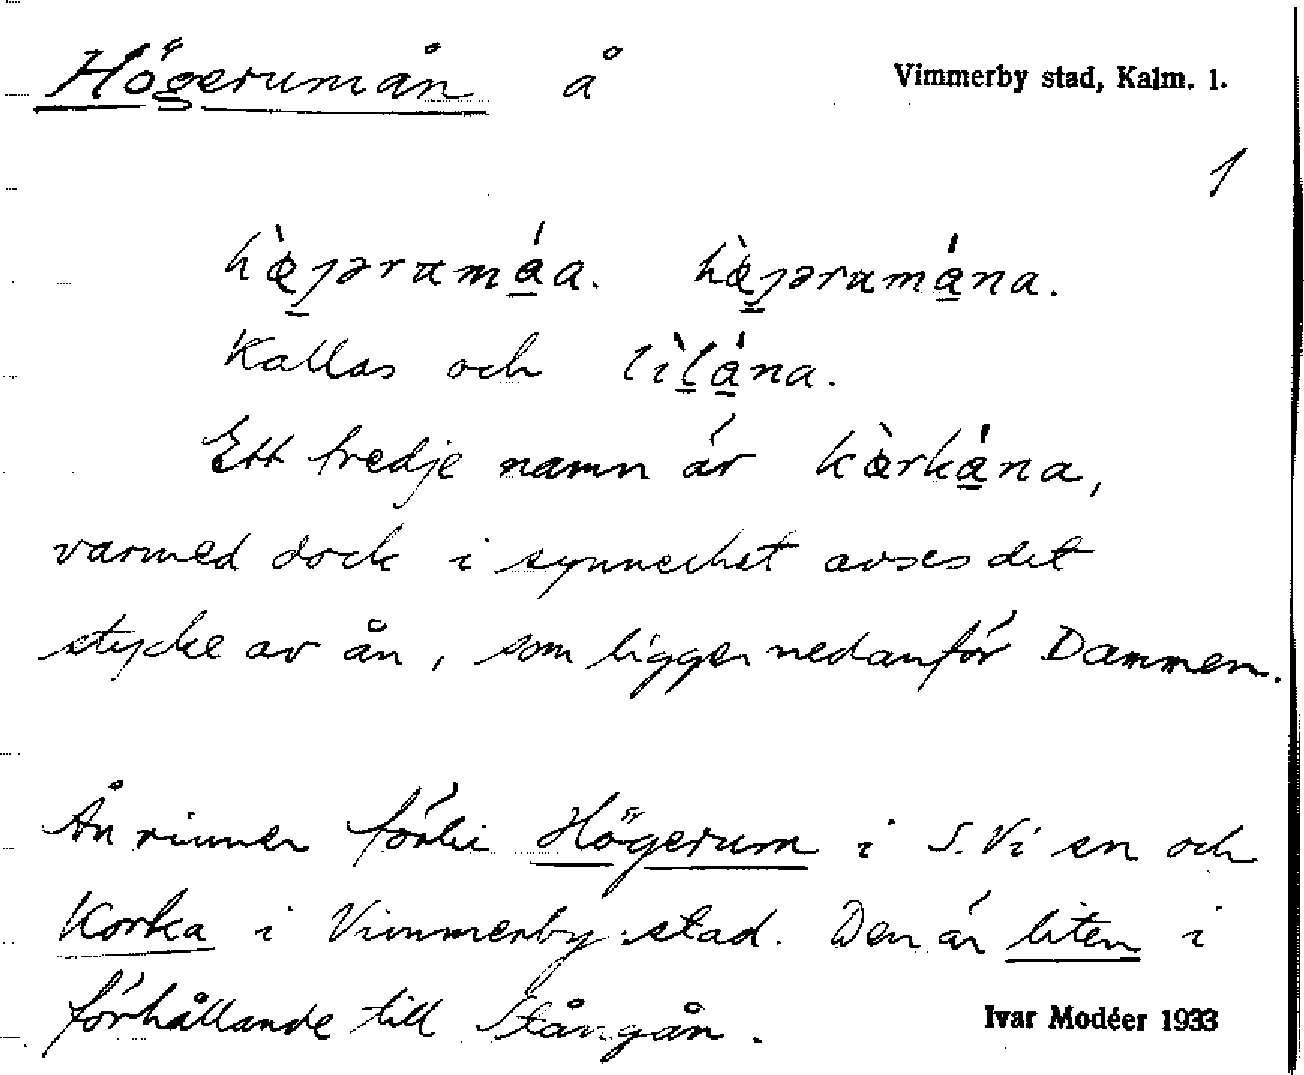 Högerumån å
Vimmerby stad, Kalm. 1.
1
hæ̀ȷərumáa. hæ̀ȷərumána.
Kallas och lìlána.
Ett tredje namn är kòrkána,
varmed dock i synnerhet avses det
stycke av ån, som ligger nedanför Dammen.
Ån rinner förbi Högerum i S. Vi sn och
Korka i Vimmerby stad. Den är liten i
förhållande till Stångån.
Ivar Modéer 1933